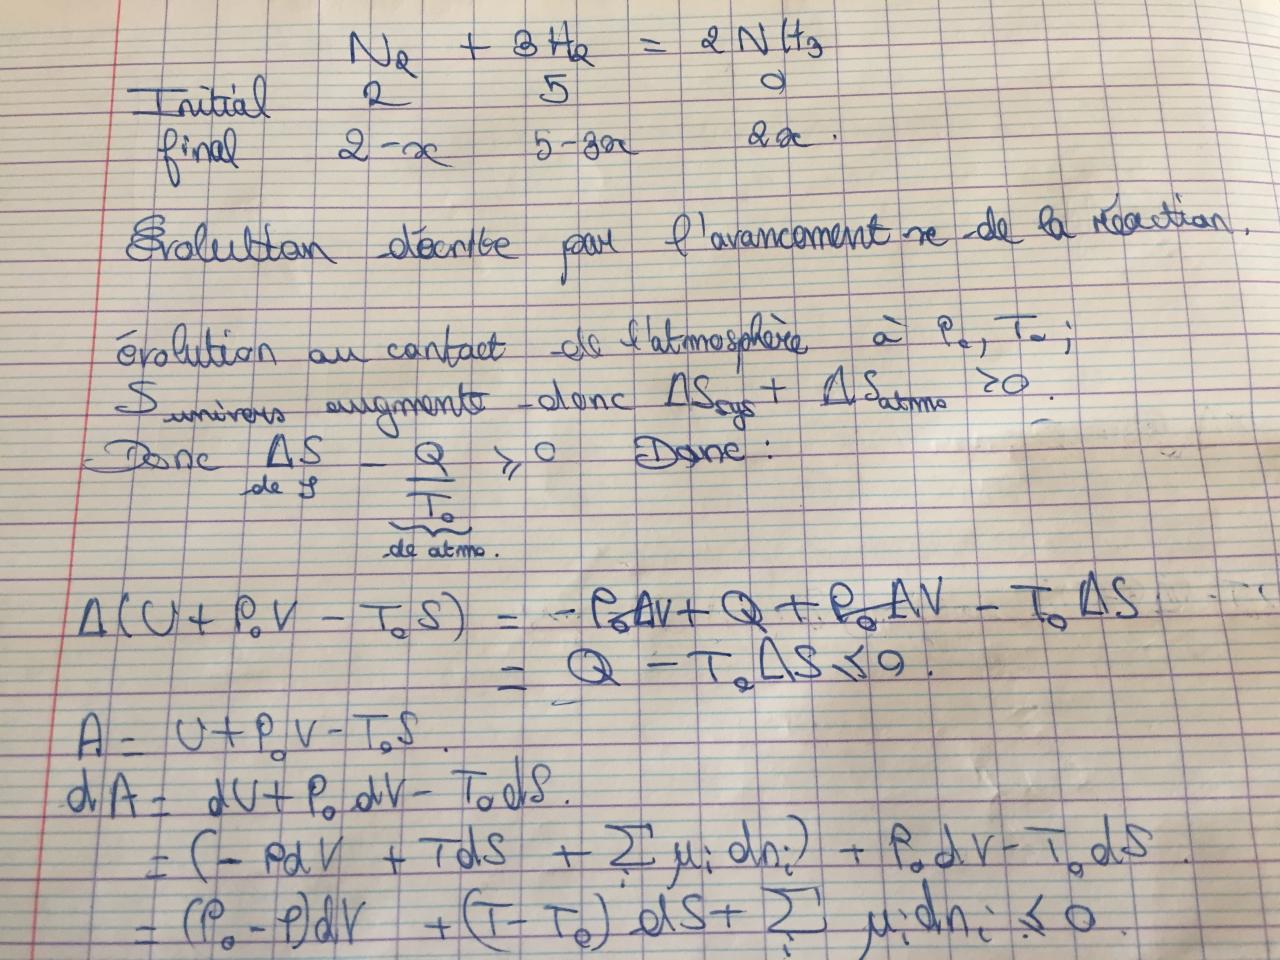 N₂ + 3H₂ = 2NH₃
Initial 2 5 0
final 2-x 5-3x 2x.
Évolution décrite par l'avancement x de la réaction.
évolution au contact de l'atmosphère à P₀, T₀ ;
S univers augmente donc ΔS_sys + ΔS_atmo ≥ 0.
Donc ΔS - Q/T₀ ≥ 0 Donc :
de S
de atmo.
Δ(U + P₀V - T₀S) = -P₀ΔV + Q + P₀ΔV - T₀ΔS
= Q - T₀ΔS ≤ 0.
A = U + P₀V - T₀S.
dA = dU + P₀dV - T₀dS.
= (-PdV + TdS + Σᵢ μᵢ dnᵢ) + P₀dV - T₀dS.
= (P₀ - P)dV + (T - T₀) dS + Σᵢ μᵢdnᵢ ≤ 0.